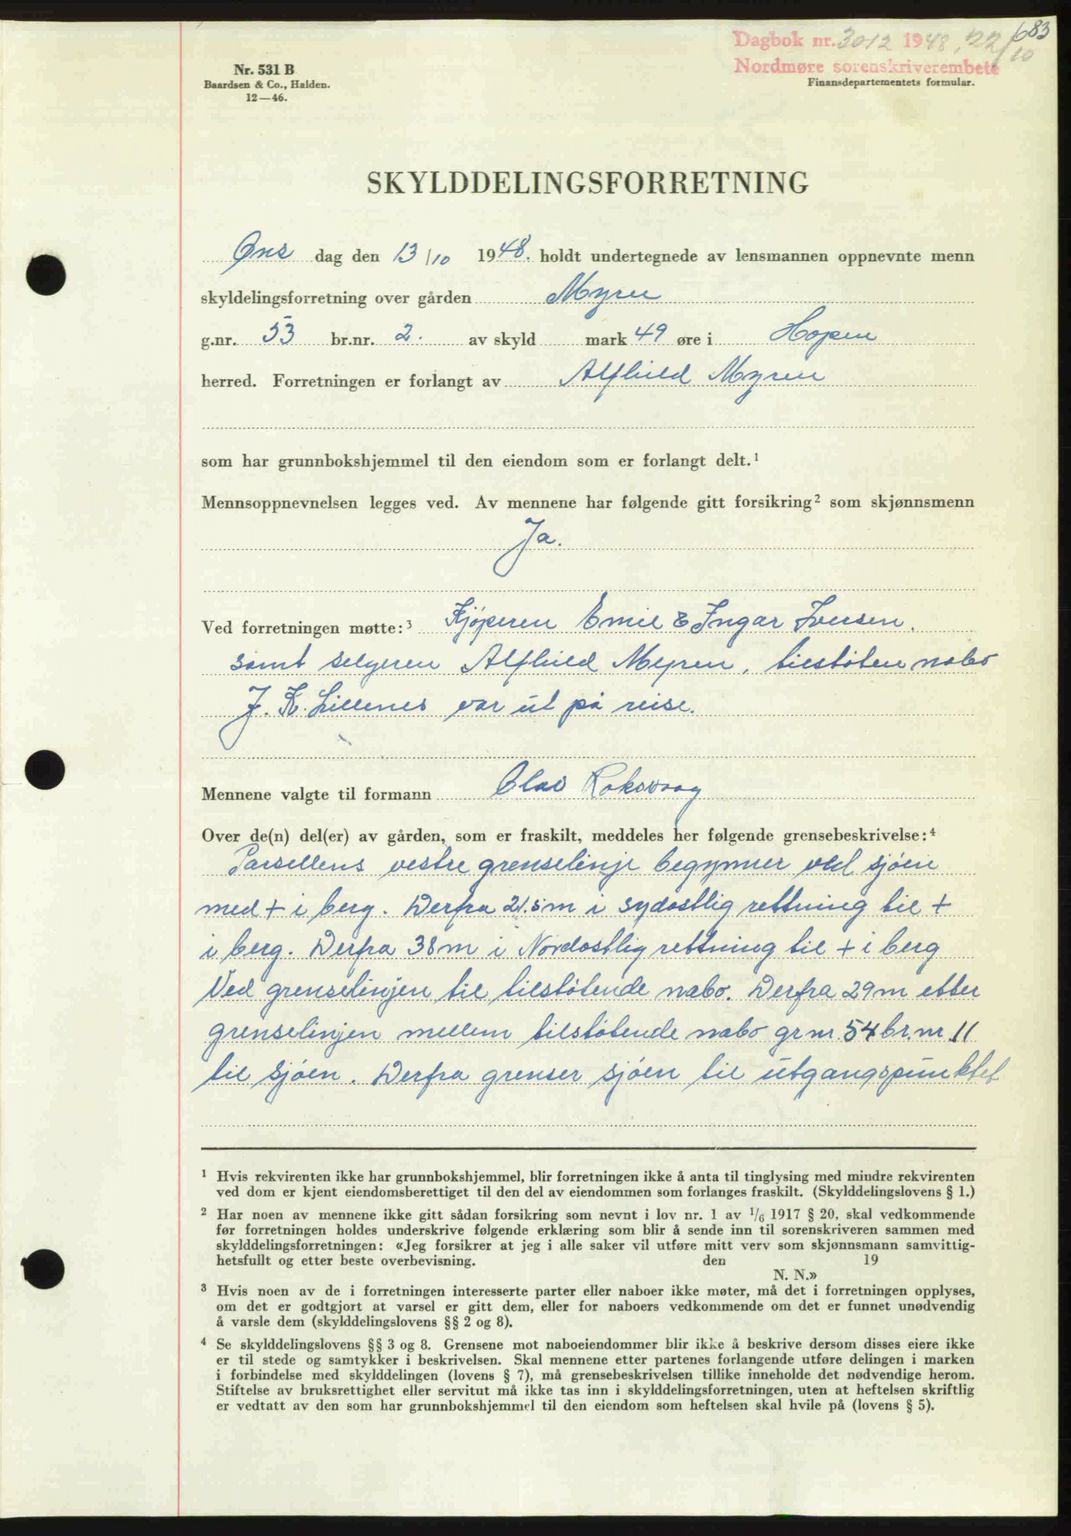 683
Dagbok nr. 3012 1948, 22/10
Nordmøre sorenskriverembete
Nr. 531 B
Baardsen & Co., Halden.
12—46.
Finansdepartementets formular.
SKYLDDELINGSFORRETNING
Ons dag den 13/10 1948. holdt undertegnede av lensmannen oppnevnte menn
skyldelingsforretning over gården Myren
g.nr. 53 br.nr. 2. av skyld mark 49 øre i Hopen
herred. Forretningen er forlangt av Alfhild Myren
som har grunnbokshjemmel til den eiendom som er forlangt delt.¹
Mennsoppnevnelsen legges ved. Av mennene har følgende gitt forsikring² som skjønnsmenn
Ja.
Ved forretningen møtte:³ Kjöperen Emil & Ingar Iversen.
samt selgeren Alfhild Myren, tilstöten nabo
J. K. Lillenes var ut på reise.
Mennene valgte til formann Olav Roksvaag
Over de(n) del(er) av gården, som er fraskilt, meddeles her følgende grensebeskrivelse:⁴
Parsellens vestre grenselinje begynner ved sjöen
med + i berg. Derfra 21.5m i sydostlig rettning til +
i berg. Derfra 38m i Nordostlig rettning til + i berg
Ved grenselinjen til tilstötende nabo. Derfra 29m etter
grenselinjen mellem tilstötende nabo gr nr. 54 br. nr 11
til sjöen. Derfra grenser sjöen til utgangspunktet
¹ Hvis rekvirenten ikke har grunnbokshjemmel, blir forretningen ikke å anta til tinglysing med mindre rekvirenten
ved dom er kjent eiendomsberettiget til den del av eiendommen som forlanges fraskilt. (Skylddelingslovens § 1.)
² Har noen av mennene ikke gitt sådan forsikring som nevnt i lov nr. 1 av 1/6 1917 § 20, skal vedkommende
før forretningen holdes underskrive følgende erklæring som blir å sende inn til sorenskriveren sammen med
skylddelingsforretningen: «Jeg forsikrer at jeg i alle saker vil utføre mitt verv som skjønnsmann samvittig-
hetsfullt og etter beste overbevisning. den 19
N. N.»
³ Hvis noen av de i forretningen interesserte parter eller naboer ikke møter, må det i forretningen opplyses,
om det er godtgjort at varsel er gitt dem, eller for naboers vedkommende om det er funnet unødvendig
å varsle dem (skylddelingslovens §§ 2 og 8).
⁴ Se skylddelingslovens §§ 3 og 8. Grensene mot naboeiendommer blir ikke å beskrive dersom disses eiere ikke
er til stede og samtykker i beskrivelsen. Skal mennene etter partenes forlangende utføre delingen i marken
i forbindelse med skylddelingen (lovens § 7), må grensebeskrivelsen tillike inneholde det nødvendige herom.
Stiftelse av bruksrettighet eller servitut må ikke tas inn i skylddelingsforretningen, uten at heftelsen skriftlig
er vedtatt av den som har grunnbokshjemmel til den eiendom som heftelsen skal hvile på (lovens § 5).